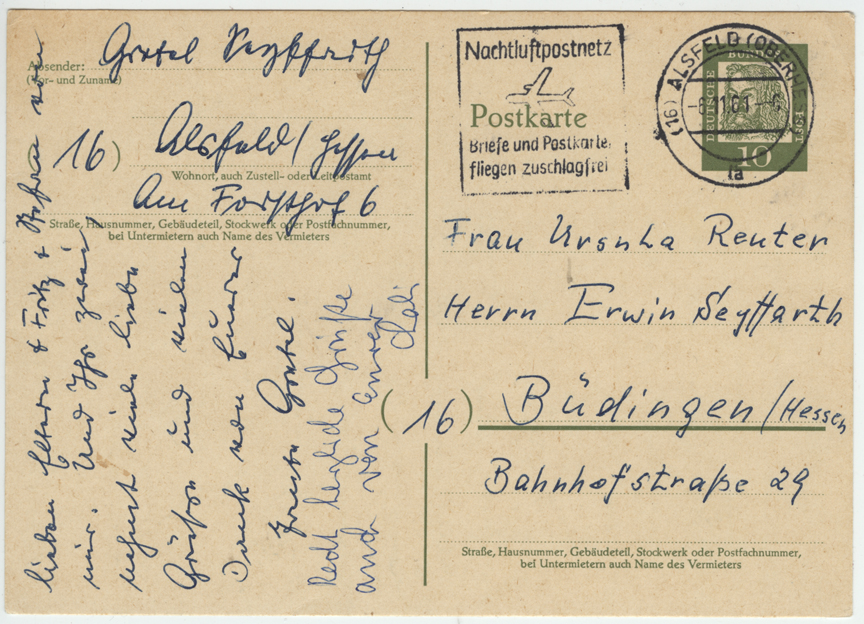 Absender:
(Vor- und Zuname)
Gretel Seyffarth
(16)
Alsfeld / Hessen
Wohnort, auch Zustell- oder Leitpostamt
Am Forsthof 6
Straße, Hausnummer, Gebäudeteil, Stockwerk oder Postfachnummer,
bei Untermietern auch Name des Vermieters
lieben Eltern & Fritz & von
mir. Und Ihr zwei
nehmt viele liebe
Grüße und vielen
Dank von Eurer
Gretel.
Recht herzliche Grüße
auch von
Nachtluftpostnetz
Briefe und Postkarten
fliegen zuschlagfrei
Postkarte
(16) ALSFELD (OBERHE
11.61
ia
DEUTSCHE
BUN
10
1961
Frau Ursula Reuter
Herrn Erwin Seyffarth
(16) Büdingen / Hessen
Bahnhofstraße 29
Straße, Hausnummer, Gebäudeteil, Stockwerk oder Postfachnummer,
bei Untermietern auch Name des Vermieters